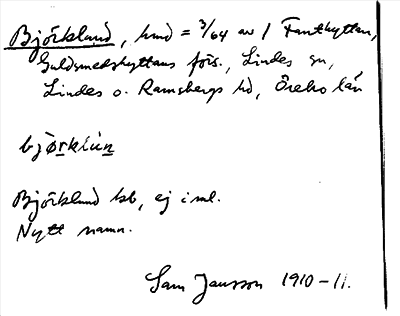 Björklund, hmd = 3/64 av 1 Fanthyttan,
Guldsmedshyttans förs., Lindes sn,
Lindes o. Ramsbergs hd, Örebro län
bjørklun
Björklund kb, ej i ml.
Nytt namn.
Sam Jansson 1910-11.